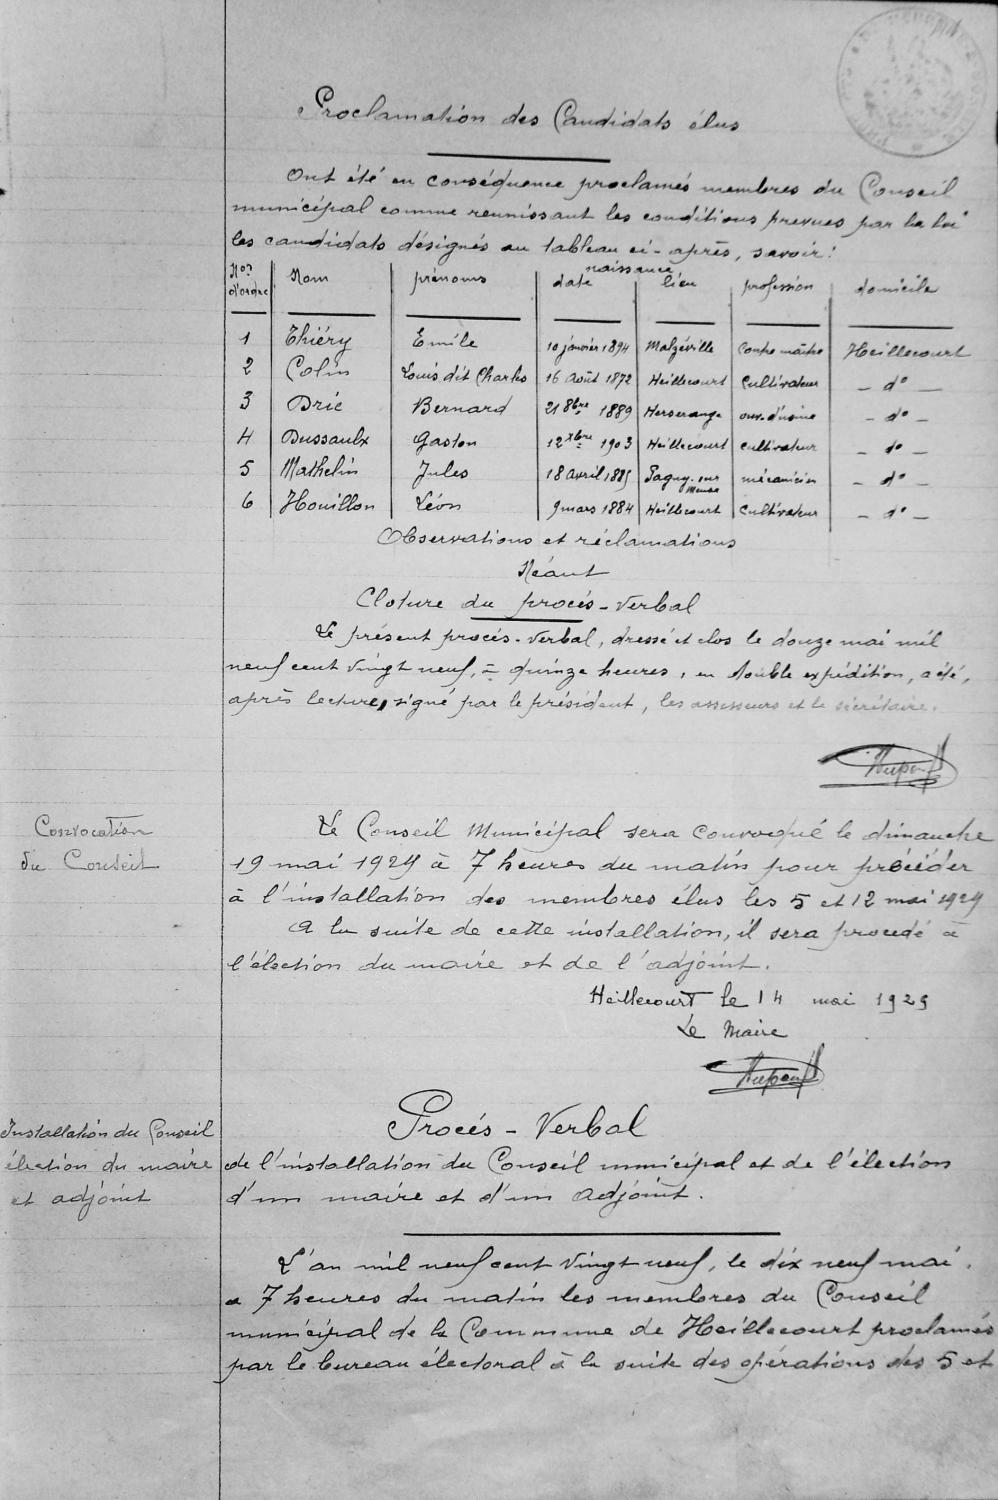 Proclamation des Candidats élus
Ont été en conséquence proclamés membres du Conseil
municipal comme reunissant les conditions prevues par la loi
les candidats désignés au tableau ci-après, savoir :
Nos d'ordre | Nom | prénoms | naissance date | lieu | profession | domicile
1 Thiéry Emile 10 janvier 1894 Malzéville Contre maître Heillecourt
2 Colin Louis dit Charles 16 Août 1872 Heillecourt Cultivateur - do -
3 Dric Bernard 21 8bre 1889 Herserange ouv. d'usine - do -
4 Dussaulx Gaston 12 xbre 1903 Heillecourt cultivateur - do -
5 Mathelin Jules 18 avril 1885 Pagny-sur Meuse mécanicien - do -
6 Houillon Léon 9 mars 1884 Heillecourt Cultivateur - do -
Observations et réclamations
Néant
Cloture du procés-verbal
Le présent procés-verbal, dressé et clos le douze mai mil
neuf cent vingt neuf, à quinze heures, en double expédition, a été,
après lecture, signé par le président, les assesseurs et le secrétaire.
Convocation
du Conseil
Le Conseil Municipal sera convoqué le dimanche
19 mai 1929 à 7 heures du matin pour procéder
à l'installation des membres élus les 5 et 12 mai 1929
A la suite de cette installation, il sera procedé à
l'élection du maire et de l'adjoint.
Heillecourt le 14 mai 1929
Le Maire
Installation du Conseil
élection du maire
et adjoint
Procés-Verbal
de l'installation du Conseil municipal et de l'élection
d'un maire et d'un adjoint.
L'an mil neuf cent vingt neuf, le dix neuf mai.
a 7 heures du matin les membres du Conseil
municipal de la Commune de Heillecourt proclamés
par le bureau électoral à la suite des opérations des 5 et